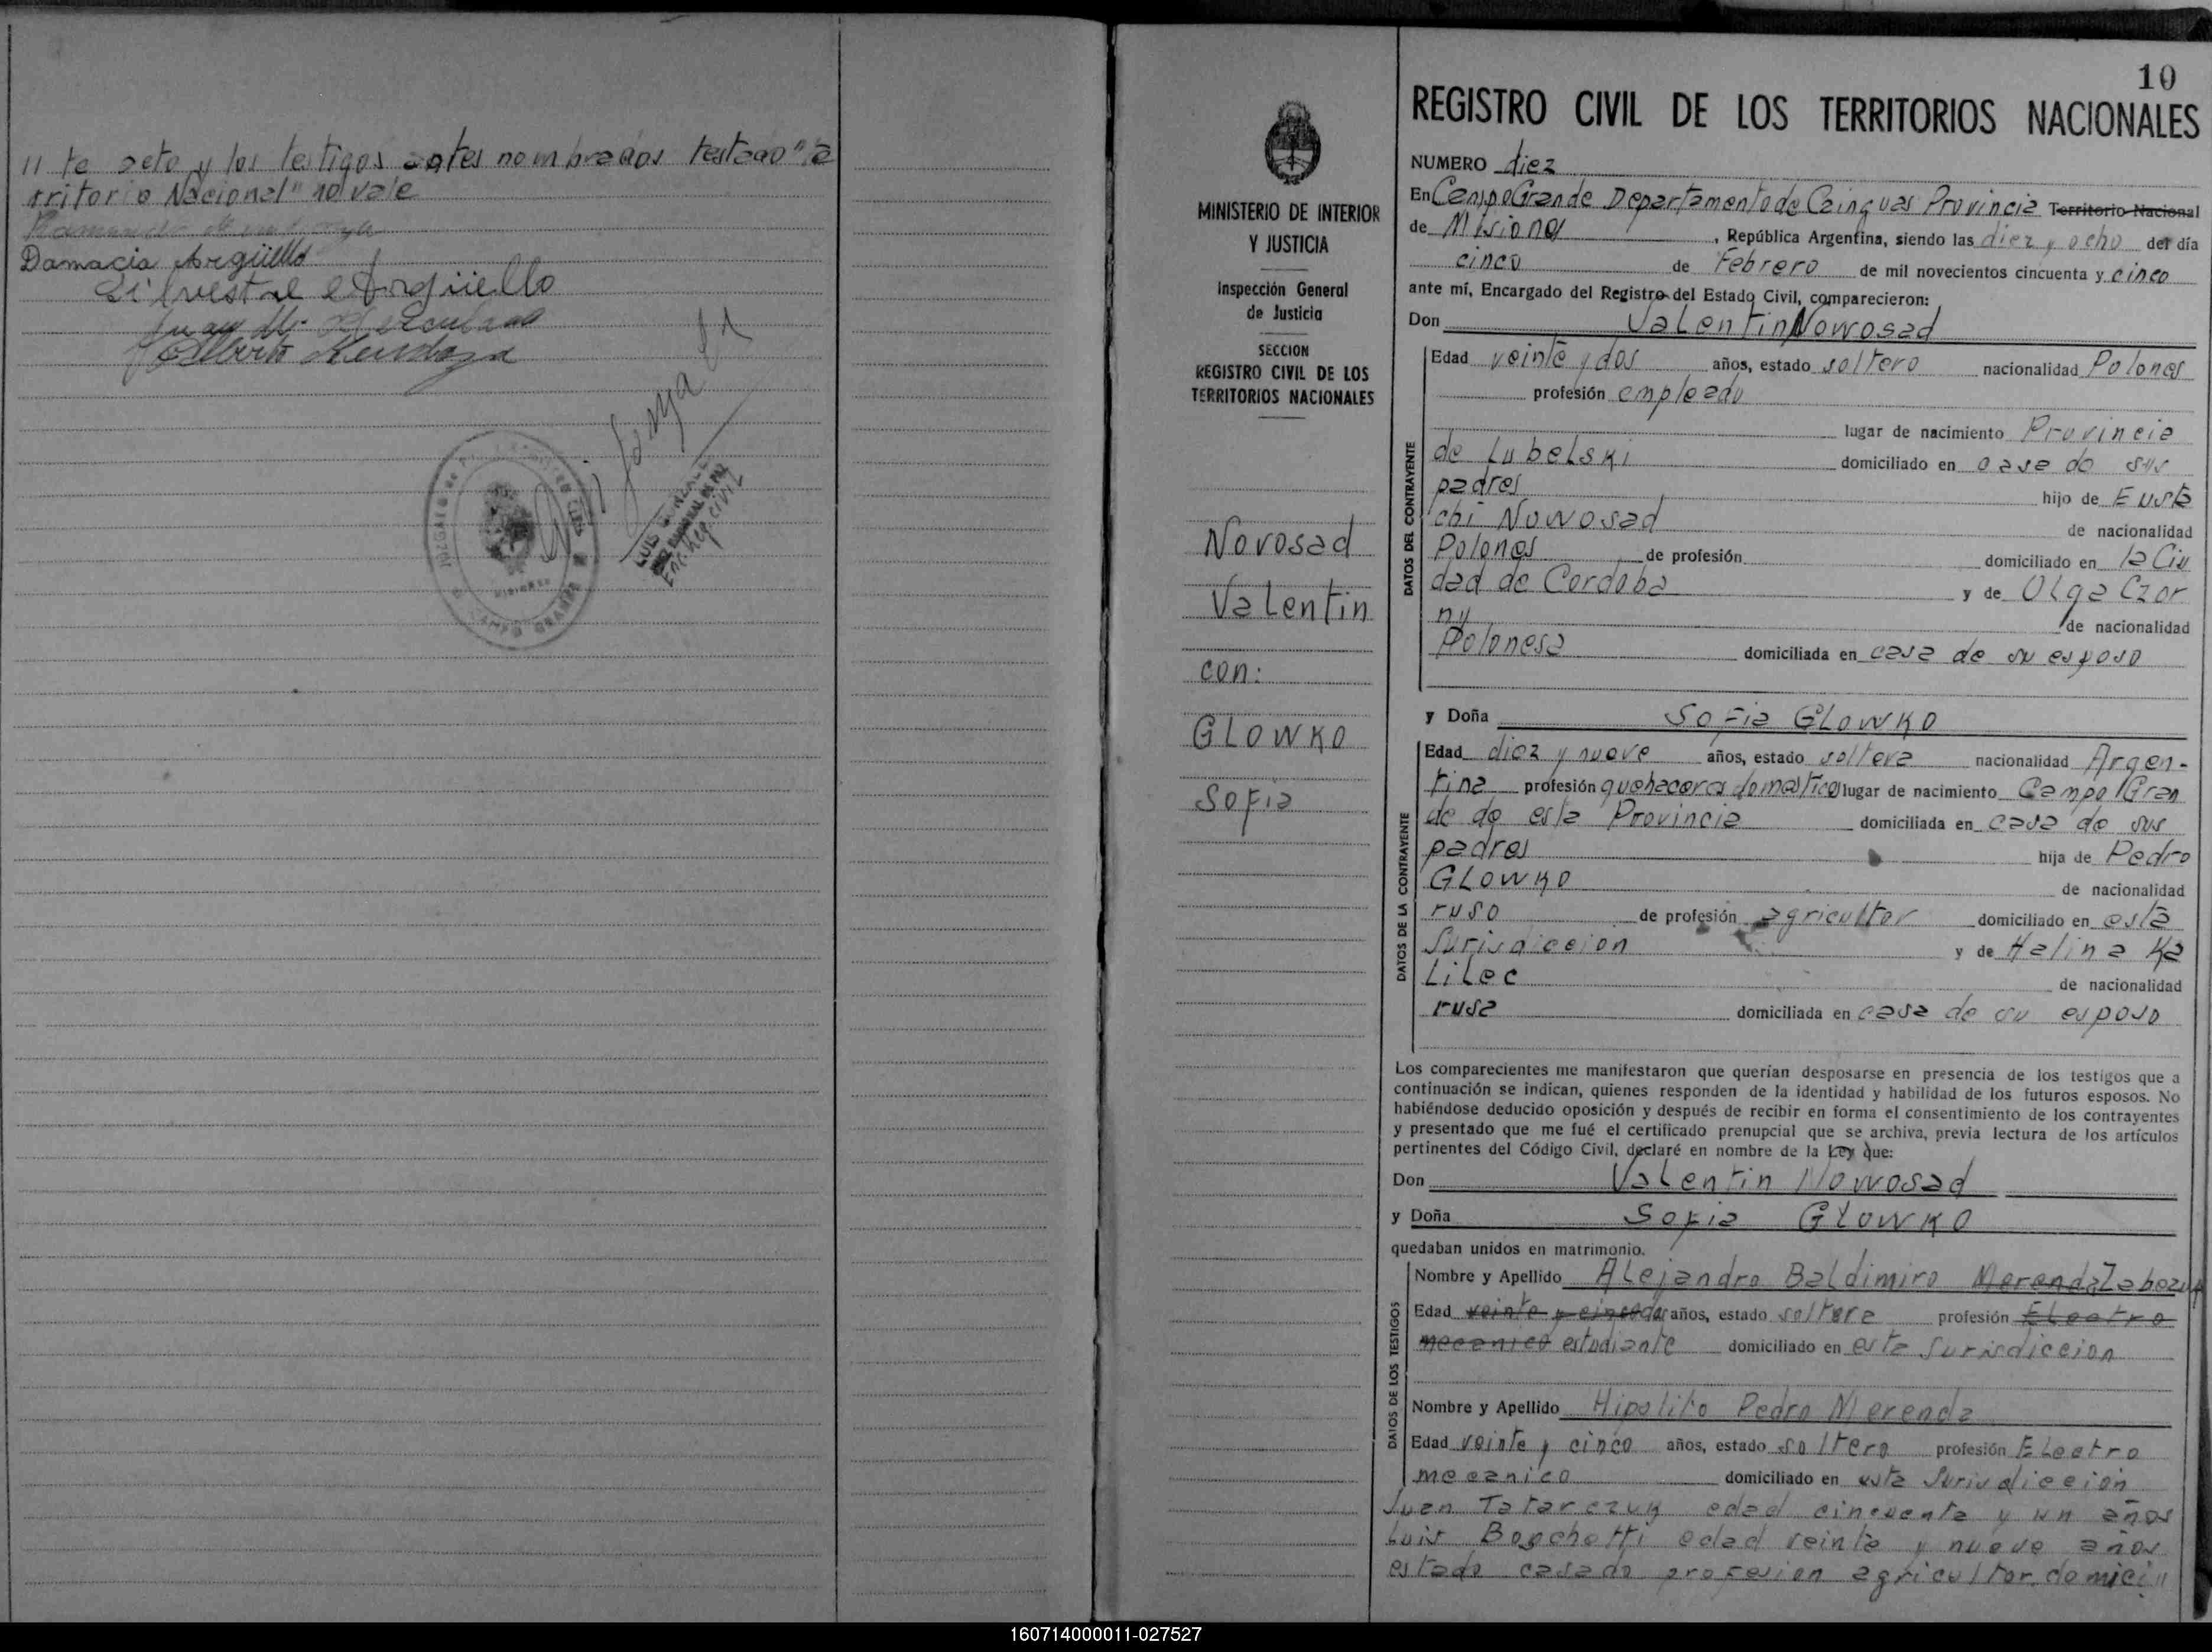 // te acto y los testigos antes nombrados testado "Te
rritorio Nacional" no vale
Damacia Argüello
Silvestre Argüello
Juan
Alberto Mendoza
LUIS
JUEZ DE PAZ
Enc. Reg. civil
JUZGADO DE PAZ
MISIONES
CAMPO GRANDE
MINISTERIO DE INTERIOR
Y JUSTICIA
Inspección General
de Justicia
SECCION
REGISTRO CIVIL DE LOS
TERRITORIOS NACIONALES
Novosad
Valentin
con:
GLOWKO
Sofia
10
REGISTRO CIVIL DE LOS TERRITORIOS NACIONALES
NUMERO diez
En Campo Grande Departamento de Cainguas Provincia Territorio Nacional
de Misiones, República Argentina, siendo las diez y ocho del día
cinco de Febrero de mil novecientos cincuenta y cinco
ante mí, Encargado del Registro del Estado Civil, comparecieron:
Don Valentin Nowosad
DATOS DEL CONTRAYENTE
Edad veinte y dos años, estado soltero nacionalidad Polones
profesión empleado
lugar de nacimiento Provincia
de Lubelski domiciliado en case de sus
padres hijo de Eusta
chi Nowosad de nacionalidad
Polones de profesión domiciliado en la Ciu
dad de Cordoba y de Olga Czor
ny de nacionalidad
Polonesa domiciliada en casa de su esposo
y Doña Sofia GLOWKO
DATOS DE LA CONTRAYENTE
Edad diez y nueve años, estado soltera nacionalidad Argen-
tina profesión quehaceres domesticos lugar de nacimiento Campo Gran
de de esta Provincia domiciliada en casa de sus
padres hija de Pedro
GLOWKO de nacionalidad
ruso de profesión agricultor domiciliado en esta
Jurisdiccion y de Halina Ka
Lilec de nacionalidad
rusa domiciliada en casa de su esposo
Los comparecientes me manifestaron que querían desposarse en presencia de los testigos que a
continuación se indican, quienes responden de la identidad y habilidad de los futuros esposos. No
habiéndose deducido oposición y después de recibir en forma el consentimiento de los contrayentes
y presentado que me fué el certificado prenupcial que se archiva, previa lectura de los artículos
pertinentes del Código Civil, declaré en nombre de la Ley que:
Don Valentin Nowosad
y Doña Sofia GLOWKO
quedaban unidos en matrimonio.
DATOS DE LOS TESTIGOS
Nombre y Apellido Alejandro Baldimiro Merenda
Edad veinte y cinco dos años, estado soltero profesión Electro
mecanico estudiante domiciliado en esta Jurisdiccion
Nombre y Apellido Hipolito Pedro Merenda
Edad veinte y cinco años, estado soltero profesión Electro
mecanico domiciliado en esta Jurisdiccion
Juan Tatarczuk edad cincuenta y un años
Luis Boschetti edad veinte y nueve años
estado casado profesion agricultor, domici //
160714000011-027527